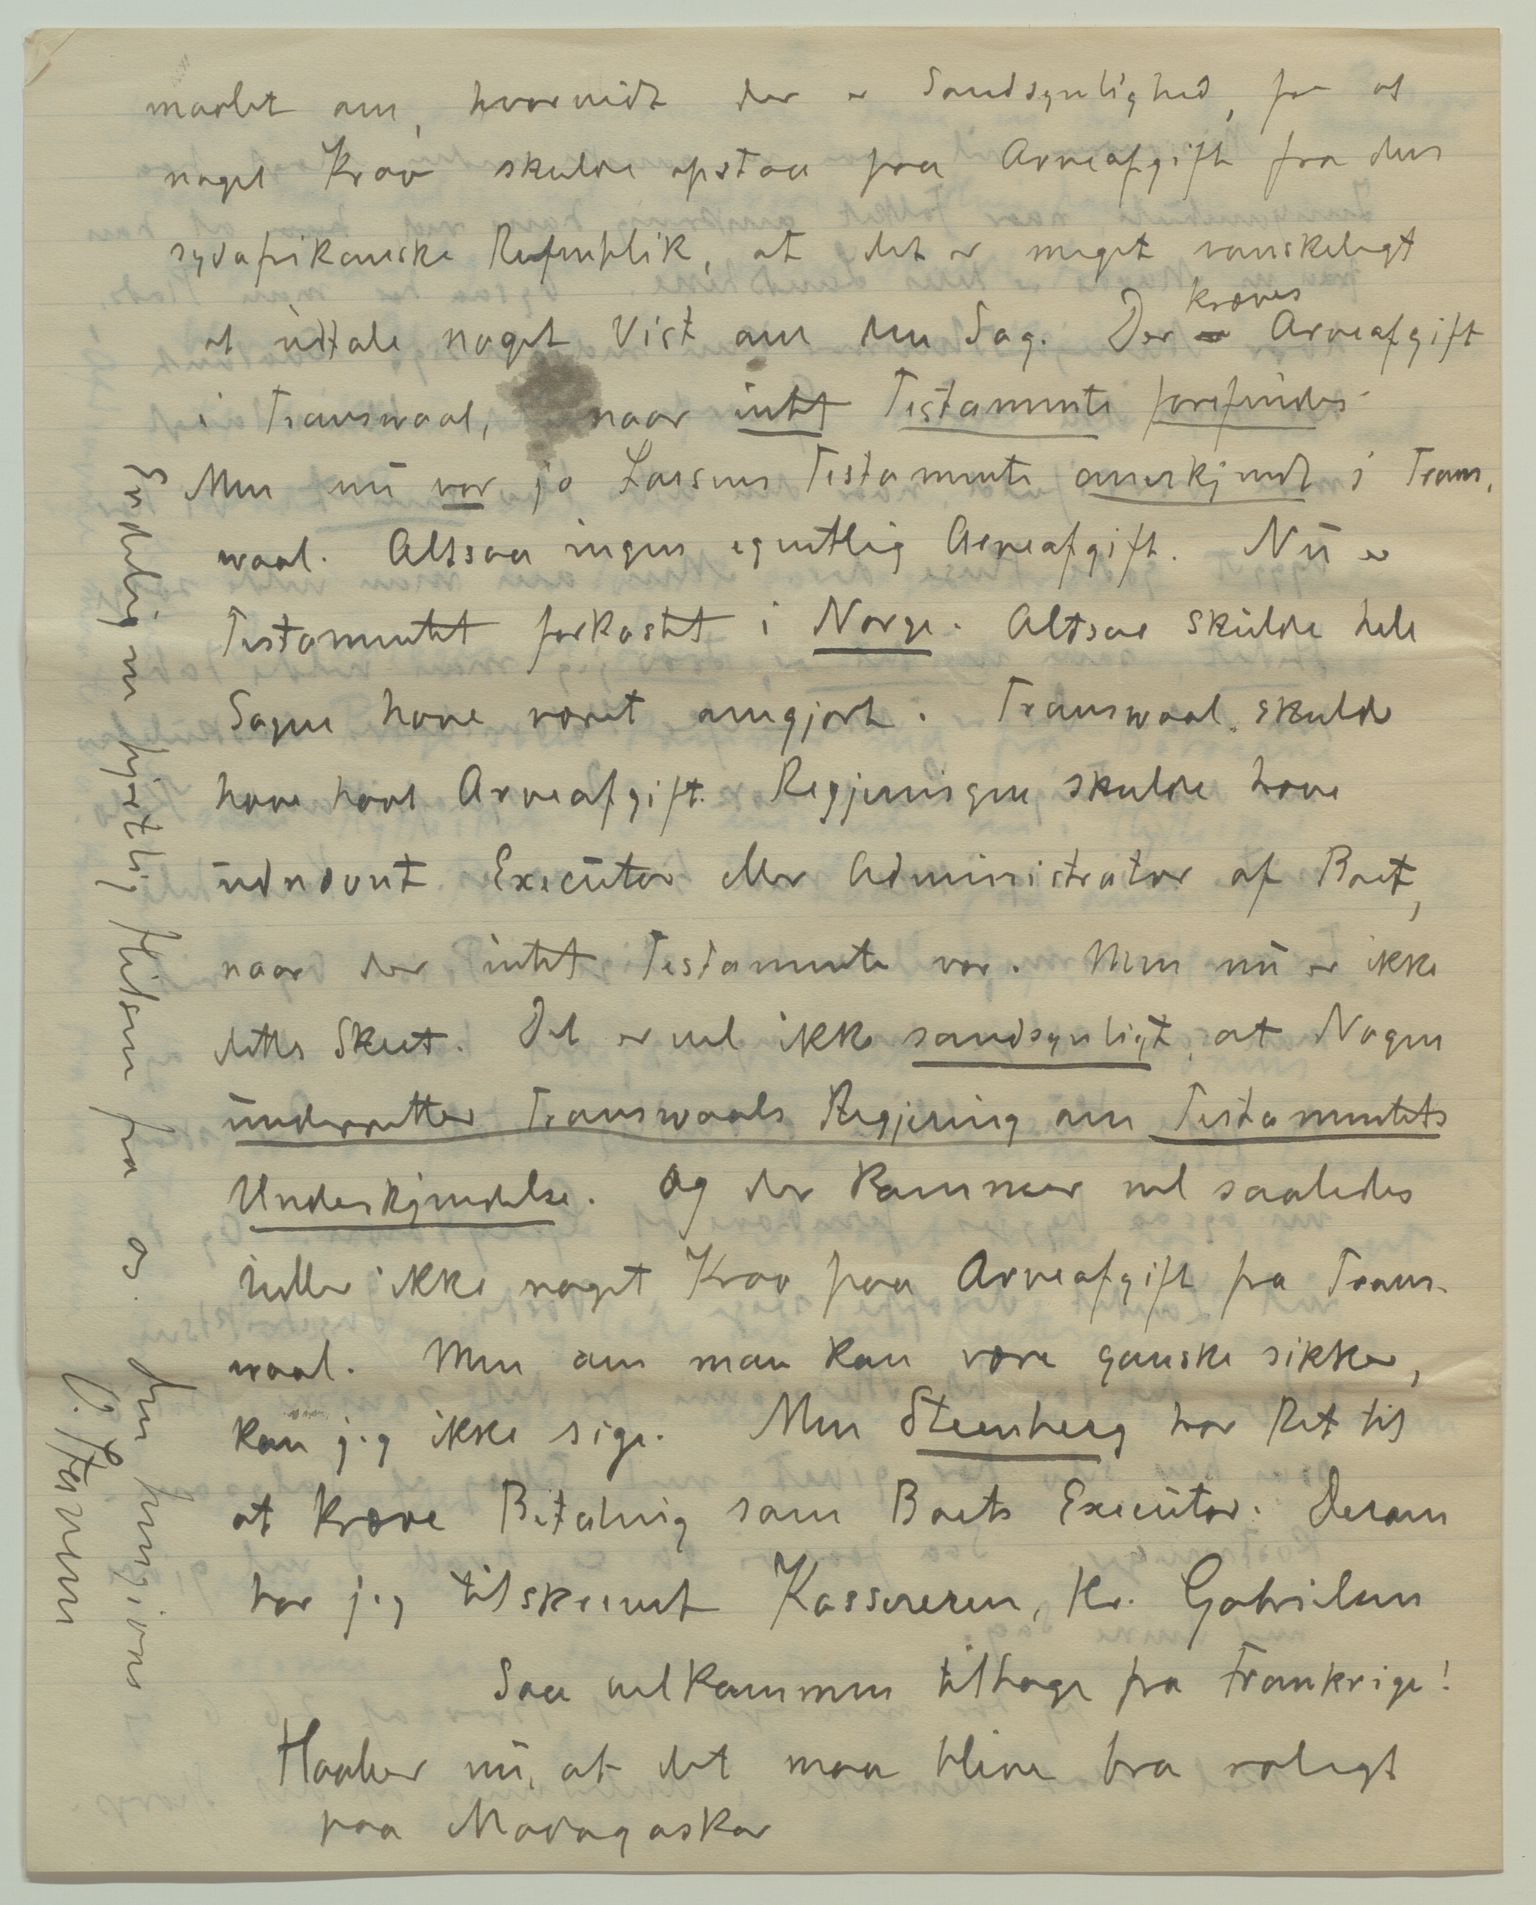 mærket om, hvorvidt der er Sandsynlighed, for at
noget Krav skulde opstaa paa Arveafgift fra den
sydafrikanske Republik, at det er meget vanskeligt
at udtale noget Vist om den Sag. Der kræves Arveafgift
i Transwaal, naar intet Testamente forefindes.
Men nu var jo Larsens Testamente anerkjendt i Trans,
waal. Altsaa ingen egentlig Arveafgift. Nu er
Testamentet forkastet i Norge. Altsaa skulde hele
Sagen have været omgjort. Transwaal skulde
have havt Arveafgift. Regjeringen skulde have
udnævnt Executor eller Administrator af Boet,
naar der intet Testamente var. Men nu er ikke
dette Skeet. Det er vel ikke sandsynligt, at Nogen
underretter Transwaals Regjering om Testamentets
Underkjendelse. Og der kommer vel saaledes
heller ikke noget Krav paa Arveafgift fra Trans-
waal. Men om man kan være ganske sikker,
kan jeg ikke sige. Men Steenberg har Ret til
at kræve Betaling som Boets Executor. Derom
har jeg tilskrevet Kassereren, Hr. Gabrielsen
Saa velkommen tilbage fra Frankrige!
Haaber nu, at det maa blive bra roligt
paa Madagaskar
Endelig en hjertelig Hilsen fra os. Din hengivne
O. Stavem